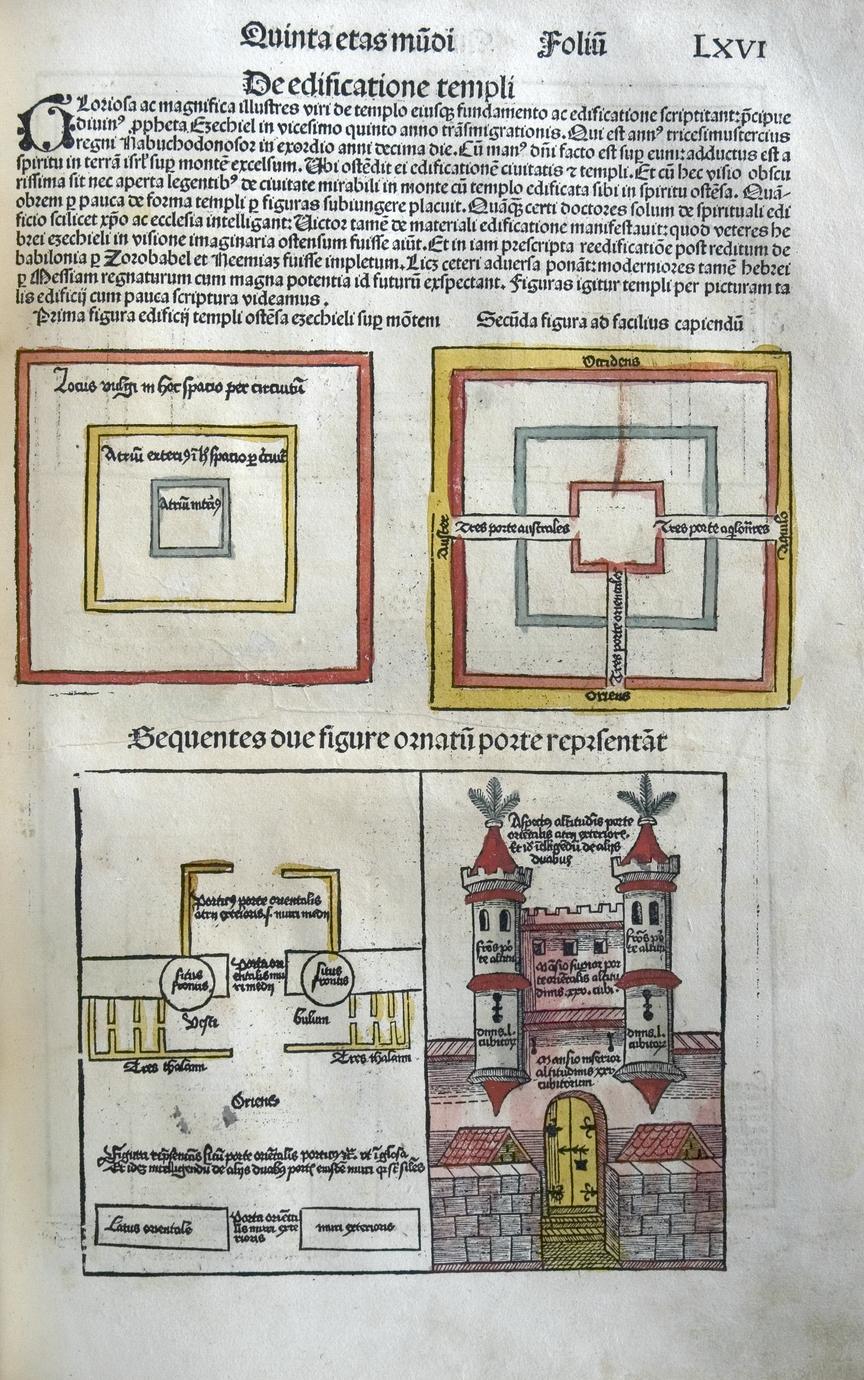 Quinta etas mũdi Foliũ LXVI
De edificatione templi
GLoriosa ac magnifica illustres viri de templo eiusqꝫ fundamento ac edificatione scriptitant:p̃cipue
diuinꝰ ꝓpheta Ezechiel in vicesimo quinto anno trãsmigrationis. Qui est annꝰ tricesimustercius
regni Nabuchodonosor in exordio anni decima die. Cũ manꝰ dñi facto est suꝑ eum:adductus est a
spiritu in terrã isrl̃ suꝑ montẽ excelsum. Ubi ostẽdit ei edificationẽ ciuitatis ⁊ templi. Et cũ hec visio obscu
rissima sit nec aperta legentibꝰ de ciuitate mirabili in monte cũ templo edificata sibi in spiritu ostẽsa. Quã-
obrem ꝑ pauca de forma templi ꝑ figuras subiungere placuit. Quãqꝫ certi doctores solum de spirituali edi
ficio scilicet xp̃o ac ecclesia intelligant: Uictor tamẽ de materiali edificatione manifestauit: quod veteres he
brei ezechieli in visione imaginaria ostensum fuisse aiũt. Et in iam prescripta reedificatiõe post reditum de
babilonia ꝑ Zorobabel et Neemiaz fuisse impletum. Licꝫ ceteri aduersa ponãt: moderniores tamẽ hebrei
ꝑ Messiam regnaturum cum magna potentia id futurũ exspectant. Figuras igitur templi per picturam ta
lis edificij cum pauca scriptura videamus.
Prima figura edificij templi ostẽsa ezechieli suꝑ mõtem Secũda figura ad facilius capiendũ
Locus vulgi in hoc spacio per circuitũ
Atriũ exteriꝰ ĩ h̃ spacio ꝑ circuitũ
Atriũ interiꝰ
Occidens
Auster
Tres porte australes
Tres porte aq̃lonẽres
Aquilo
Tres porte orientales
Oriens
Sequentes due figure ornatũ porte repr̃sentãt
Porticꝰ porte orientalis
atrij exterioris.s. muri medij
situs
frontis
Porta ori
entalis mu
ri medij
situs
frontis
Vesti
bulum
Tres thalami
Tres thalami
Oriens
Figura repñtans situ porte oriẽtalis porticꝰ ⁊c. vt ĩ glosa
Et idẽ intelligendũ de alijs duabꝰ portis eiusdẽ muri q̃ st̃ siles
Latus orientale
Porta oriẽta
lis muri exte
rioris
muri exterioris
Aspectꝰ altitudĩs porte
oriẽtalis atrij exterioris.
Et id̃ ĩtelligẽdũ de alijs
duabus
frõs põ
te altitu
frõs põ
te altitu
Mãsio suꝑior por
te oriẽtalis altitu
dinis .xxv. cubi.
dinis .l.
cubitorꝫ
dinis .l.
cubitorꝫ
Mansio inferior
altitudinis xxv
cubitorum